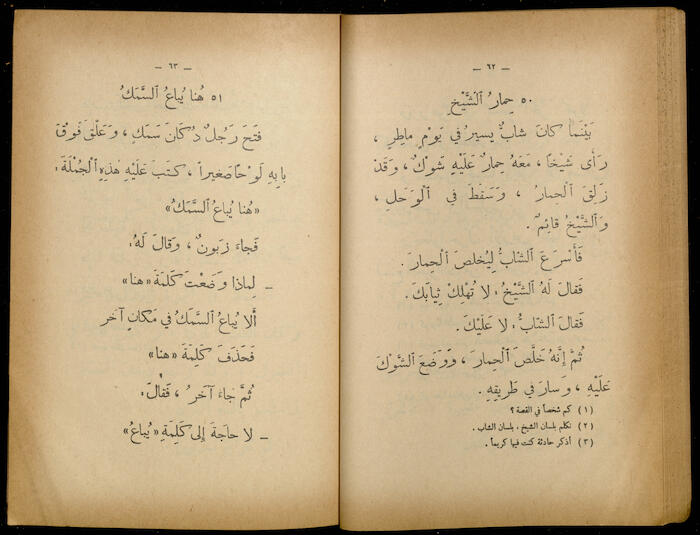 — ٦٢ —
٥٠ حِمارُ ٱلشَّيْخِ
بَيْنَما كانَ شابٌّ يسيرُ في يَوْمٍ ماطِرٍ ،
رَأى شَيْخاً ، مَعَهُ حِمارٌ عَلَيْهِ شَوْكٌ ، وَقَدْ
زَلِقَ ٱلْحِمارُ ، وَسَقَطَ في ٱلْوَحَلِ ،
وَٱلشَّيْخُ قائِمٌ .
فَأَسْرَعَ ٱلشّابُّ لِيُخَلِّصَ ٱلْحِمارَ .
فَقالَ لَهُ ٱلشَّيْخُ : لا تُهْلِكْ ثِيابَكَ .
فَقالَ ٱلشّابُّ : لا عَلَيْكَ .
ثُمَّ إِنَّهُ خَلَّصَ ٱلْحِمارَ ، وَوَضَعَ ٱلشَّوْكَ
عَلَيْهِ ، وَسارَ في طَريقِهِ .
(١) كم شخصاً في القصة ؟
(٢) تكلم بلسان الشيخ ، بلسان الشاب .
(٣) أذكر حادثة كنت فيها كريماً .
— ٦٣ —
٥١ هُنا يُباعُ ٱلسَّمَكُ
فَتَحَ رَجُلٌ دُكّانَ سَمَكٍ ، وَعَلَّقَ فَوْقَ
بابِهِ لَوْحاً صَغيراً ، كَتَبَ عَلَيْهِ هٰذِهِ ٱلْجُمْلَةَ :
«هُنا يُباعُ ٱلسَّمَكُ»
فَجاءَ زَبونٌ ، وَقالَ لَهُ :
– لِماذا وَضَعْتَ كَلِمَةَ «هنا»
أَلا يُباعُ ٱلسَّمَكُ في مَكانٍ آخَرَ
فَحَذَفَ كَلِمَةَ «هنا»
ثُمَّ جاءَ آخَرُ ، فَقالَ :
– لا حاجَةَ إِلى كَلِمَةِ «يُباعُ»